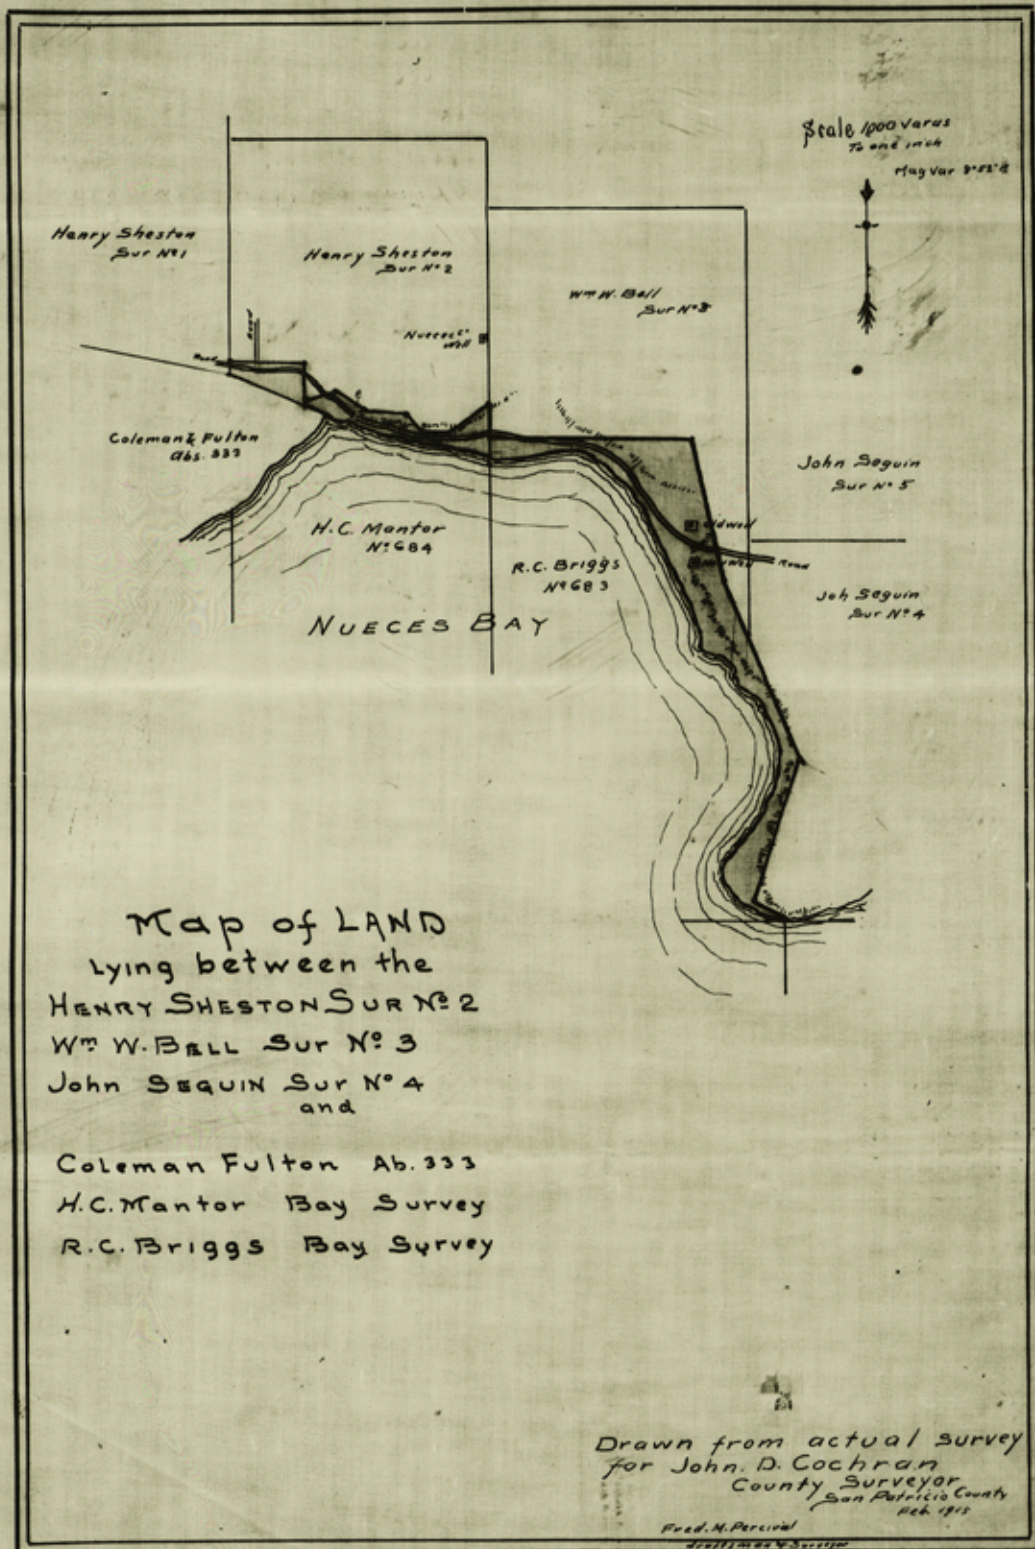 Scale 1000 Varas
To one inch
Mag Var
Henry Sheston
Sur Nº1
Henry Sheston
Sur Nº2
Wm W. Bell
Sur Nº3
Road
Nueces
Well
Road
Coleman & Fulton
Abs. 333
John Seguin
Sur Nº 5
H.C. Mantor
Nº 684
R.C. Briggs
Nº 683
Old well
Road
Joh Seguin
Sur Nº 4
NUECES BAY
Map of LAND
Lying between the
HENRY SHESTON SUR Nº 2
Wm W. BELL Sur Nº 3
John SEGUIN Sur Nº 4
and
Coleman Fulton Ab. 333
H.C. Mantor Bay Survey
R.C. Briggs Bay Survey
Drawn from actual survey
for John. D. Cochran
County Surveyor
San Patricio County
Feb. 1915
Fred. M. Percival
draftsman & Surveyor